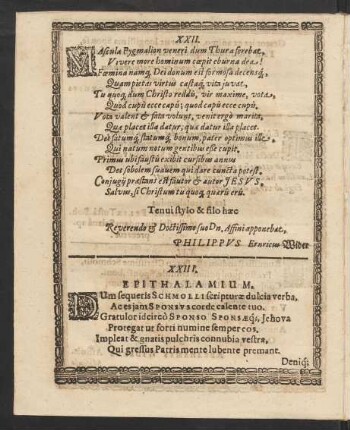 XXII.
MAscula Pygmalion veneri dum Thura ferebat,
Vivere more hominum cœpit eburna dea!
Fœmina namq, Dei donum est formosa decensq,
Quam pietas virtus castaq, vita juvat.
Tu quoq, dum Christo reddis, vir maxime, vota,
Quod cupis ecce capis; quod capis ecce cupis.
Vota valent & fata volunt, venit ergò marita,
Quæ placet illa datur, quæ datur illa placet.
Det statumq, bonum, pater optimus ille,
Qui natum notum gentibus esse cupit,
Primus ubi faustè exibit cursibus annus
Det sobolem suavem qui dare cuncta potest.
Conjugij præstans est fautor & autor JESVS,
Salvus, si Christum tu quoq, quæris eris.
Tenui stylo & filo hæc
Reverendo & Doctissimo suo Dn. Affini apponebat,
PHILIPPVS Henricus Wider
XXIII.
EPITHALAMIUM.
DUm sequeris SCHMOLLI scripturæ dulcia verba,
Aces jam SPONSVS corde calente tuo.
Gratulor idcircò SPONSO SPONSÆq;, Jehova
Protegat ut forti numine semper eos.
Impleat & gnatis pulchris connubia vestra,
Qui gressus Patris mente lubente premant.
Deniq;